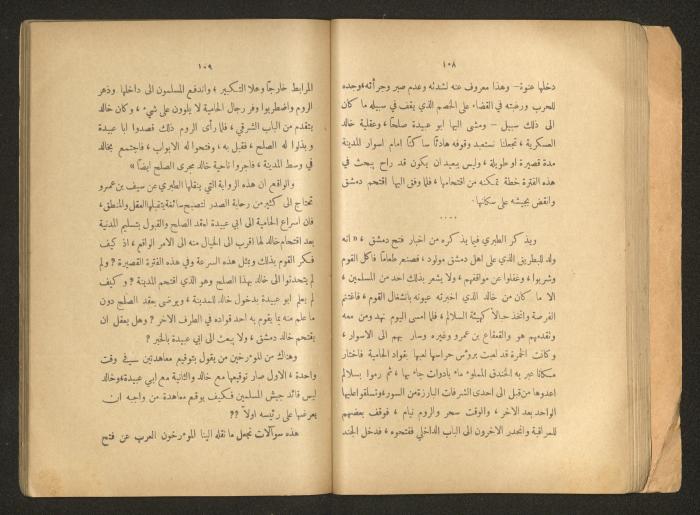 ١٠٨
دخلها عنوة – وهذا معروف عنه لشدته وعدم صبر وجرأته ووجده
للحرب ورغبته في القضاء على الخصم الذي يقف في سبيله ما كان
الى ذلك سبيل – ومشى اليها ابو عبيدة صلحاً ، وعقلية خالد
العسكرية ، تجعلنا نستبعد وقوفه هادئاً ساكناً امام اسوار المدينة
مدة قصيرة او طويلة ، وليس ببعيد ان يكون قد راح يبحث في
هذه الفترة خطة تمكنه من اقتحامها ، فلما وفق اليها اقتحم دمشق
وانقض بجيشه على سكانها .
. . . .
ويذكر الطبري فيما يذكره من اخبار فتح دمشق ، « انه
ولد للبطريق الذي على اهل دمشق مولود ، فصنع طعاماً فاكل القوم
وشربوا ، وغفلوا عن مواقفهم ، ولا يشعر بذلك احد من المسلمين ،
الا ما كان من خالد الذي اخبرته عيونه بانشغال القوم ، فاغتنم
الفرصة واتخذ حبالاً كهيئة السلالم ، فلما امسى اليوم نهد ومن معه
وتقدمهم هو والقعقاع بن عمرو وغيره وسار بهم الى الاسوار ،
وكانت الخمرة قد لعبت برؤس حراسها لعبها بقواد الحامية فاختار
مكاناً عبر به الخندق المملوء ماء بادوات جاء بها ، ثم رموا بسلالم
اعدوها من قبل الى احدى الشرفات البارزة من السور ، وتسلقوا عليها
الواحد بعد الاخر ، والوقت سحر والروم نيام ، فوقف بعضهم
للمراقبة وانحدر الاخرون الى الباب الداخلي ففتحوه ، فدخل الجند
١٠٩
المرابط خارجاً وعلا التكبير ، واندفع المسلمون الى داخلها وذعر
الروم واضطربوا وفر رجال الحامية لا يلوون على شيء ، وكان خالد
يتقدم من الباب الشرقي ، فلما رأى الروم ذلك قصدوا ابا عبيدة
وبذلوا له الصلح ، فقبل به ، وفتحوا له الابواب ، فاجتمع بخالد
في وسط المدينة ، فاجروا ناحية خالد مجرى الصلح ايضاً »
والواقع ان هذه الرواية التي ينقلها الطبري عن سيف بن عمرو
تحتاج الى كثير من رحابة الصدر لتصبح سائغة يتقبلها العقل والمنطق ،
فان اسراع الحامية الى ابي عبيدة لعقد الصلح والقبول بتسليم المدنية
بعد اقتحام خالد لها اقرب الى الخيال منه الى الامر الواقع ، اذ كيف
فكر القوم بذلك وبمثل هذه السرعة وفي هذه الفترة القصيرة ? ولم
لم يتحدثوا الى خالد بهذا الصلح وهو الذي اقتحم المدينة ? وكيف
لم يعلم ابو عبيدة بدخول خالد للمدينة ، ويرضى بعقد الصلح دون
ما علم منه بما يقوم به احد قواده في الطرف الاخر ? وهل يعقل ان
يقتحم خالد دمشق ، ولا يبعث الى ابي عبيدة بالخبر ?
وهناك من المؤرخين من يقول بتوقيع معاهدتين في وقت
واحدة ، الاول صار توقيعها مع خالد والثانية مع ابي عبيدة ، وخالد
ليس قائد جيش المسلمين فكيف يوقع معاهدة من واجبه ان
يعرضها على رئيسه اولاً ??
هذه سوآلات تجعل ما نقله الينا المؤرخون العرب عن فتح